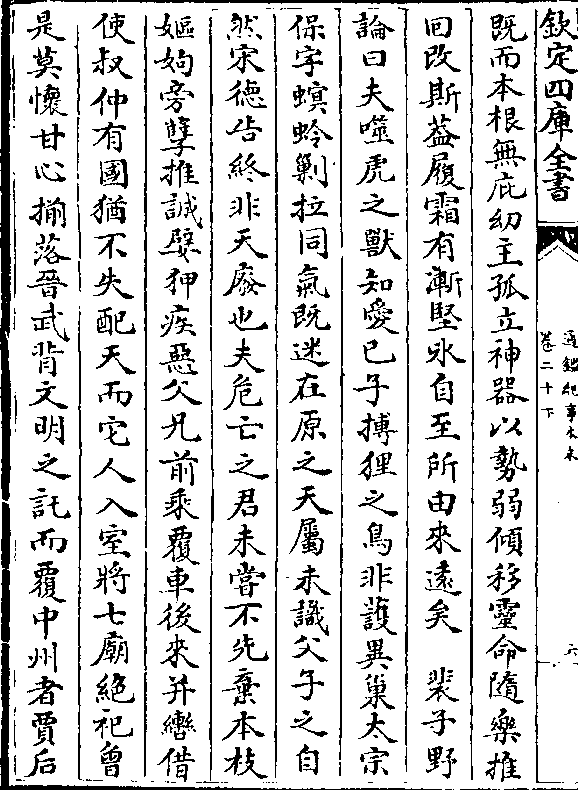 欽定四庫全書
通鑑紀事本末
卷二十下
六
既而本根無庇幼主孤立神器以勢弱傾移靈命隨樂推
回改斯葢履霜有漸堅氷自至所由來遠矣　裴子野
論曰夫噬虎之獸知愛已子搏狸之鳥非護異巢太宗
保字螟蛉剿拉同氣既迷在原之天屬未識父子之自
然宋德告終非天廢也夫危亡之君未嘗不先棄本枝
嫗姁旁孽推誠嬖狎疾惡父兄前乘覆車後來并轡借
使叔仲有國猶不失配天而它人入室將七廟絕祀曾
是莫懷甘心揃落晉武背文明之託而覆中州者賈后